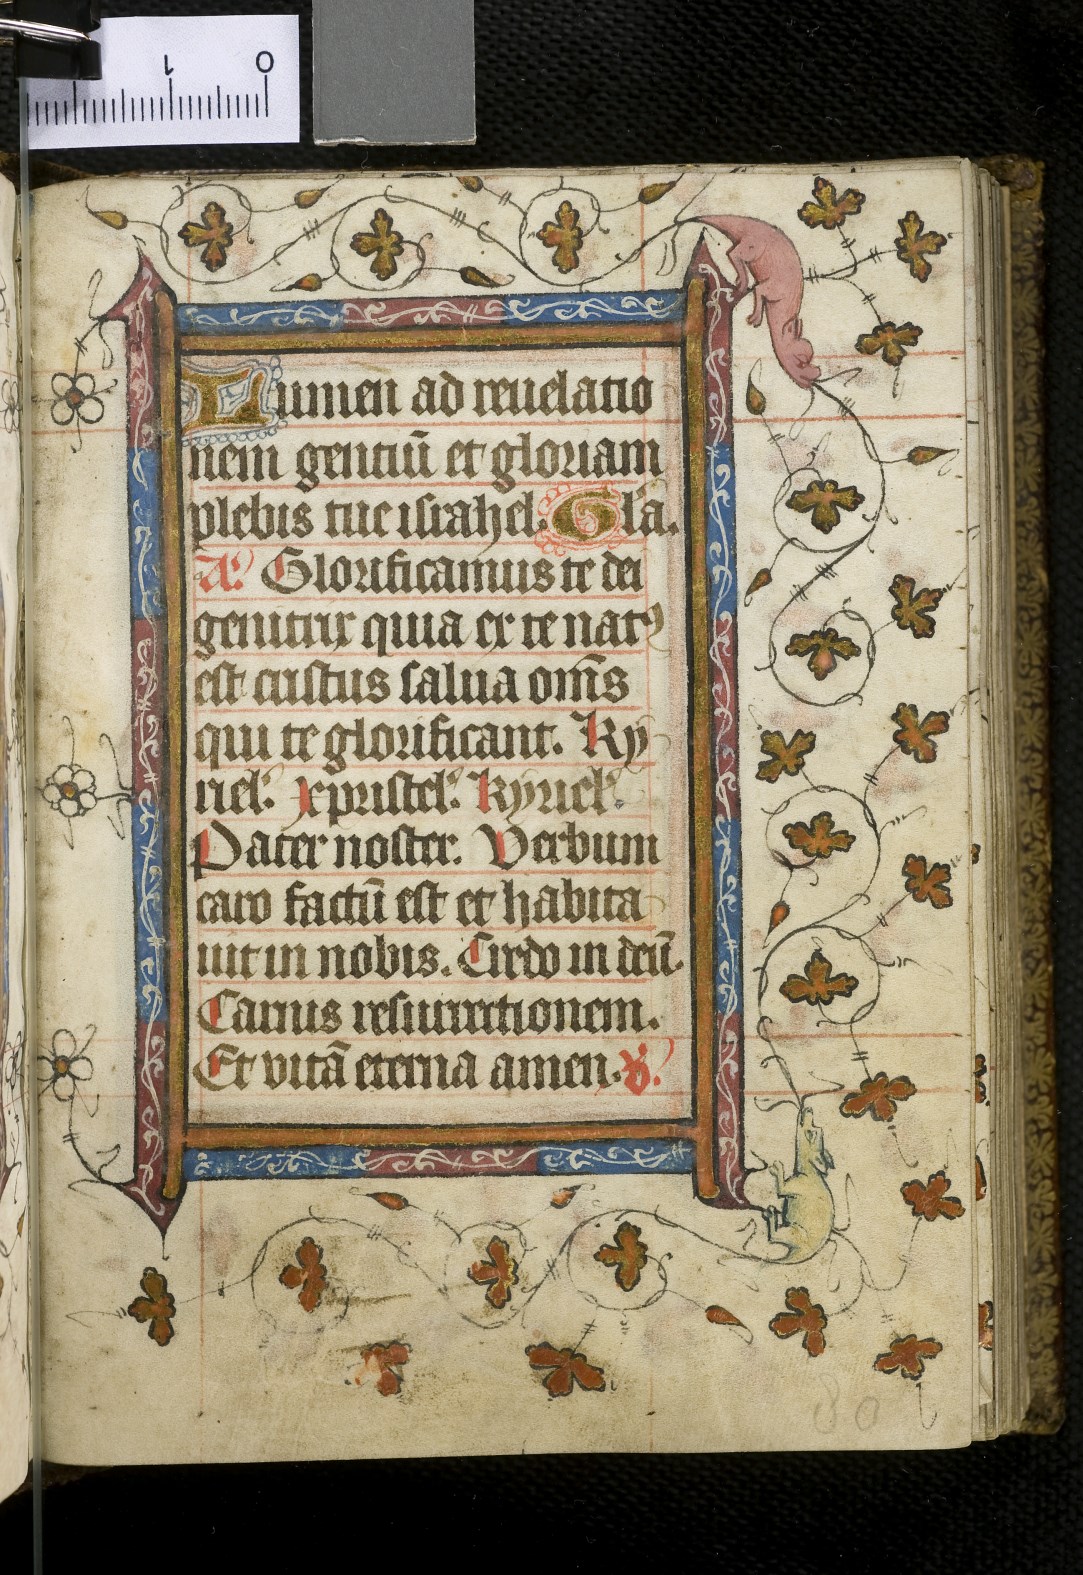 1 0
Lumen ad reuelatio
nem gentiū et gloriam
plebis tue israhel. Gl̄a.
A̓. Glorificamus te dei
genitrix quia ex te natꝰ
est cristus salua om̄s
qui te glorificant. Ky
riel̓. xpristel̓. kyriel̓.
Pater noster. Verbum
caro factū est et habita
uit in nobis. Credo in deū.
Carnis resurrectionem.
Et vitā eterna amen. V̓.
80